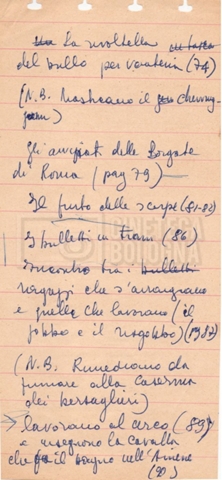 La rivoltella
del bullo per vanteria (74)
(N.B. Masticano il chewing
gum)
Gli arrivati delle Borgate
di Roma (pag 79)
Il furto delle scarpe (81-82)
I bulletti in tram (86)
Incontro tra i bulletti
ragazzi che s'arrangiano
e quelli che lavorano (il
e il (87)
(N.B. Rimediano da
fumare alla caserma
dei bersaglieri)
lavorano al circo (89)
e insegnano la cavalla
che il sogno nell'Aniene
CINETECA
BOLOGNA